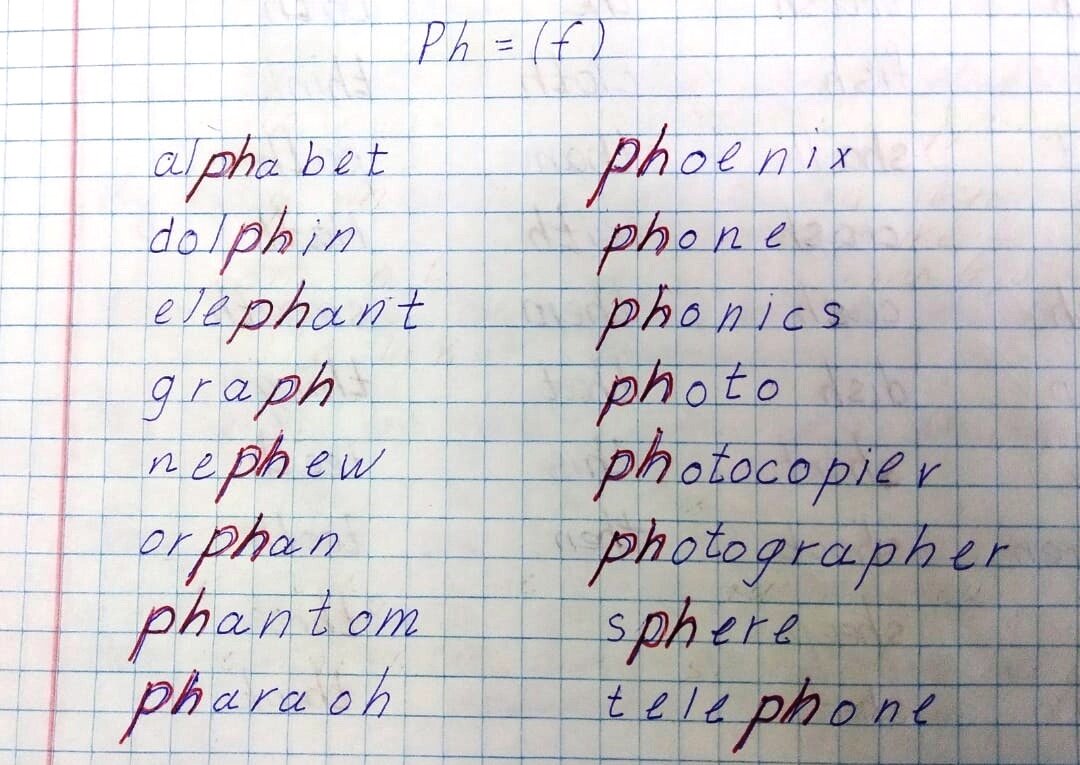 Ph = (f)
alphabet
dolphin
elephant
graph
nephew
orphan
phantom
pharaoh
phoenix
phone
phonics
photo
photocopier
photographer
sphere
telephone